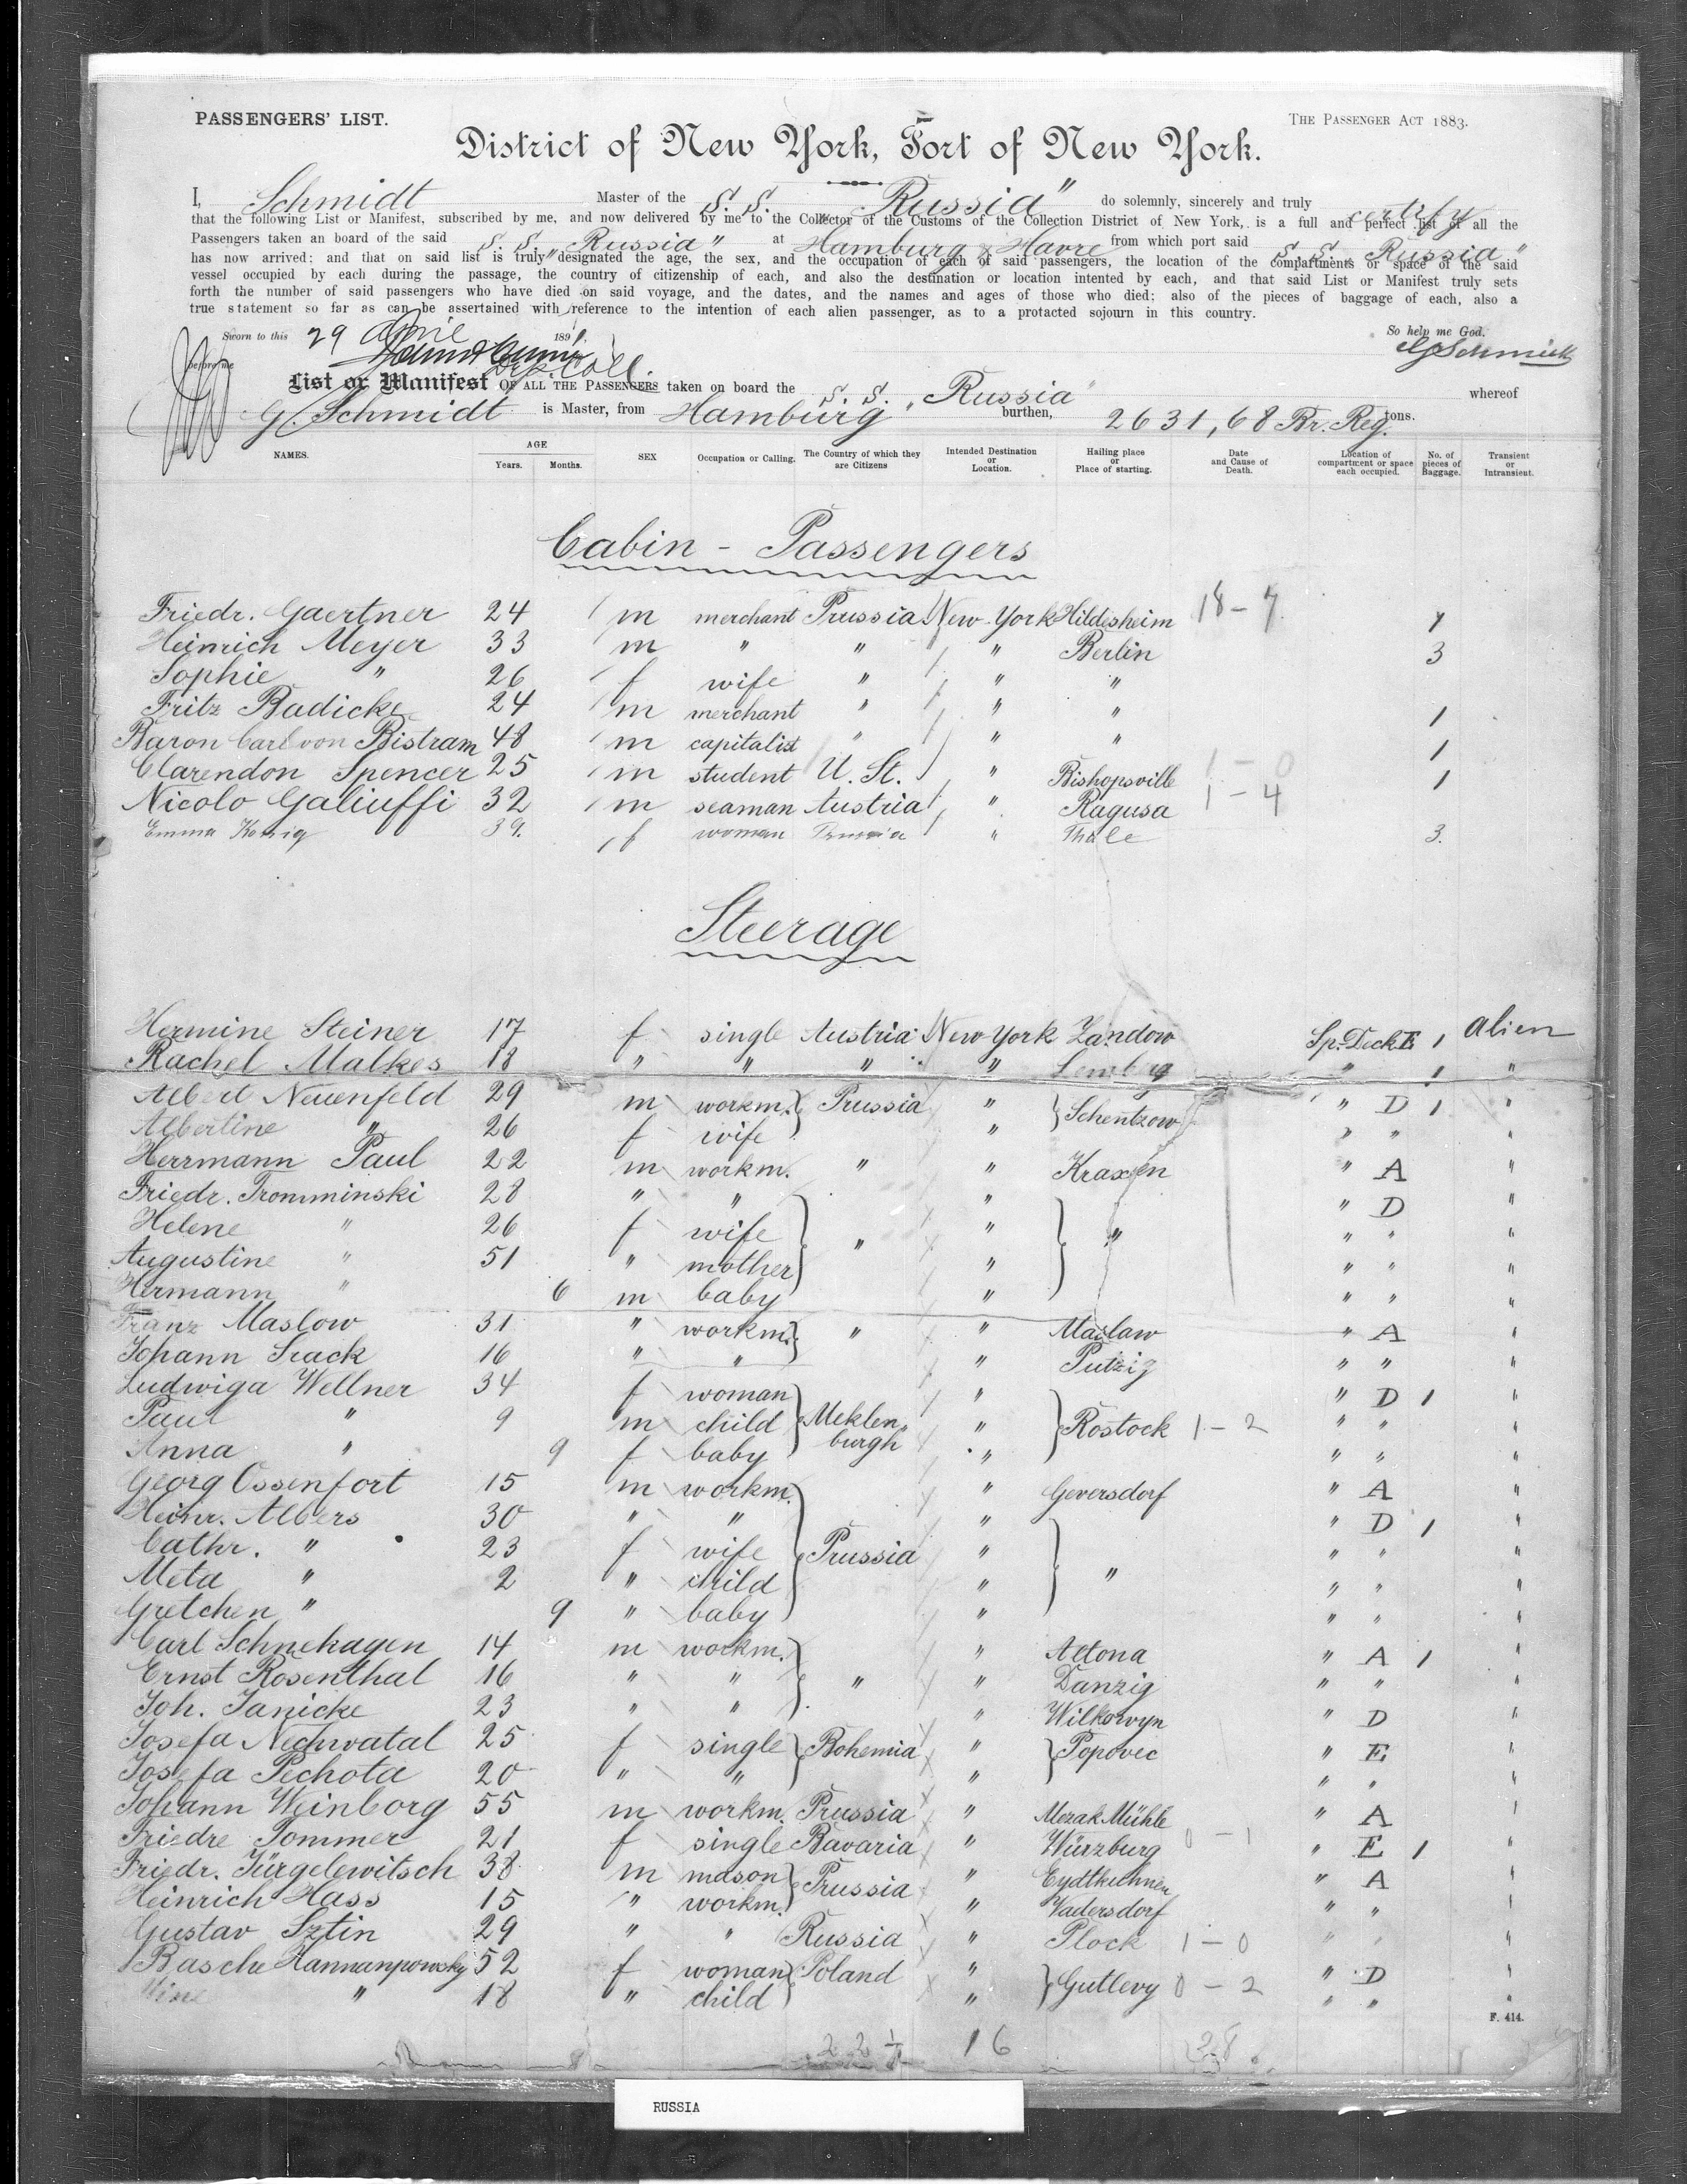 PASSENGERS' LIST.
THE PASSENGER ACT 1883.
District of New York, Port of New York.
I, Schmidt Master of the S. S. "Russia" do solemnly, sincerely and truly certify
that the following List or Manifest, subscribed by me, and now delivered by me to the Collector of the Customs of the Collection District of New York, is a full and perfect list of all the
Passengers taken an board of the said S. S. "Russia" at Hamburg & Havre from which port said S. S. "Russia"
has now arrived: and that on said list is truly designated the age, the sex, and the occupation of each of said passengers, the location of the compartments or space of the said
vessel occupied by each during the passage, the country of citizenship of each, and also the destination or location intented by each, and that said List or Manifest truly sets
forth the number of said passengers who have died on said voyage, and the dates, and the names and ages of those who died; also of the pieces of baggage of each, also a
true statement so far as can be ascertained with reference to the intention of each alien passenger, as to a protacted sojourn in this country.
Sworn to this 29 April 1891
So help me God.
before me
G Schmidt
List or Manifest OF ALL THE PASSENGERS taken on board the S. S. "Russia" whereof
G. Schmidt is Master, from Hamburg burthen, 2631,68 Br. Reg. tons.
NAMES. AGE Years. Months. SEX Occupation or Calling. The Country of which they are Citizens Intended Destination or Location. Hailing place or Place of starting. Date and Cause of Death. Location of compartment or space each occupied. No. of pieces of Baggage. Transient or Intransient.
Cabin - Passengers
Friedr. Gaertner 24 m merchant Prussia New York Hildesheim 18-7 1
Heinrich Meyer 33 m " " " Berlin 3
Sophie " 26 f wife " " "
Fritz Badicke 24 m merchant " " " 1
Baron Carl von Bistram 48 m capitalist " " " 1
Clarendon Spencer 25 m student U. St. " Bishopsville 1-0 1
Nicolo Galiuffi 32 m seaman Austria " Ragusa 1-4
Emma König 39. f woman Prussia " Thale 3.
Steerage
Hermine Steiner 17 f single Austria New York Zandow Sp. Deck E 1 Alien
Rachel Malkes 18 " " " " Lemberg " 1 "
Albert Neuenfeld 29 m workm. Prussia " Schentzow " D 1 "
Albertine " 26 f wife " " " "
Herrmann Paul 22 m workm. " " Kraxen " A "
Friedr. Tromminski 28 " " " " D "
Helene " 26 f wife " " " " " "
Augustine " 51 " mother " " " "
Hermann " 6 m baby " " " "
Franz Maslow 31 " workm. " " Maslaw " A "
Johann Srack 16 " " " Putzig " " "
Ludwiga Wellner 34 f woman " " D 1 "
Paul " 9 m child Meklenburgh " Rostock 1-2 " " "
Anna " 9 f baby " " " "
Georg Ossenfort 15 m workm. " Geversdorf " A "
Heinr. Albers 30 " " " " D 1 "
Cathr. " 23 f wife Prussia " " " "
Meta " 2 " child " " " " "
Gretchen " 9 " baby " " " "
Carl Schnehagen 14 m workm. " Altona " A 1 "
Ernst Rosenthal 16 " " " " Danzig " " "
Joh. Janicke 23 " " " Wilkowyn " D "
Josefa Nechvatal 25 f single Bohemia " Popovec " E "
Josefa Pechota 20 " " " " " "
Johann Weinborg 55 m workm. Prussia " Mezak Mühle " A "
Friedre Pommer 21 f single Bavaria " Würzburg 0-1 " E 1 "
Friedr. Jürgelewitsch 38 m mason Prussia " Eydtkuhnen " A "
Heinrich Hass 15 " workm. " Vadersdorf " " "
Gustav Sztin 29 " " Russia " Plock 1-0 " " "
Basche Hannanpowsky 52 f woman Poland " Gutlevy 0-2 " D "
" 18 " child " " " "
F. 414.
16 28
RUSSIA